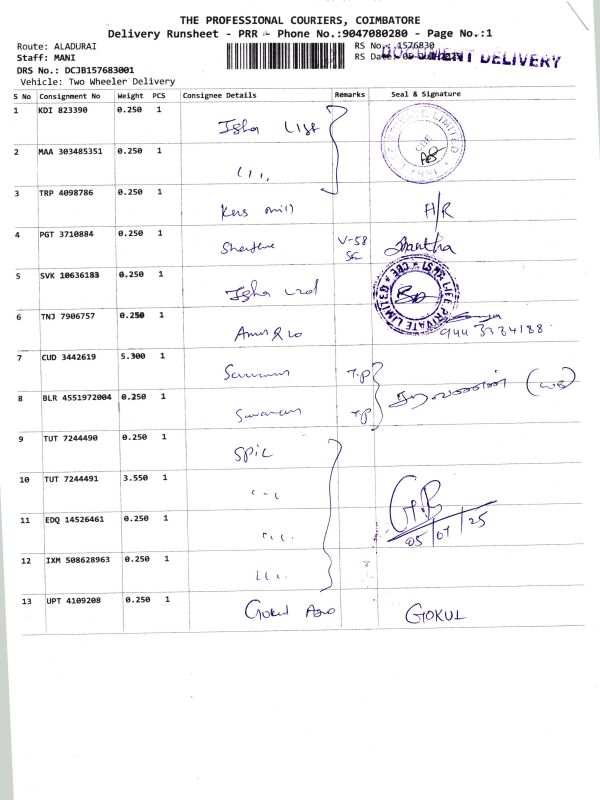 THE PROFESSIONAL COURIERS, COIMBATORE
Delivery Runsheet - PRR - Phone No.:9047080280 - Page No.:1
Route: ALADURAI
RS No.: 1576830
Staff: MANI
RS Date:
DOCUMENT DELIVERY
DRS No.: DCJB157683001
Vehicle: Two Wheeler Delivery
S No Consignment No Weight PCS Consignee Details Remarks Seal & Signature
1 KDI 823390 0.250 1 Isha
2 MAA 303485351 0.250 1
3 TRP 4098786 0.250 1 mill H/R
4 PGT 3710884 0.250 1 V-58
5 SVK 10636183 0.250 1 Isha
ISHA LIFE PRIVATE LIMITED CBE
6 TNJ 7906757 0.250 1
7 CUD 3442619 5.300 1 T.P
சரவணன்
8 BLR 4551972004 0.250 1 T.P
9 TUT 7244490 0.250 1 SPIC
10 TUT 7244491 3.550 1
11 EDQ 14526461 0.250 1 05/07/25
12 IXM 508628963 0.250 1
13 UPT 4109208 0.250 1 Gokul GOKUL